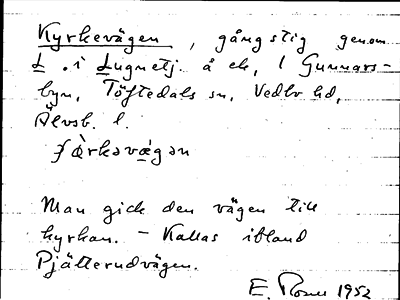 Kyrkevägen, gångstig genom
L. i Lugnetj. å ek, i Gunnars-
byn, Töftedals sn, Vedbo hd,
Älvsb. l.
Man gick den vägen till
kyrkan. – Kallas ibland
Pjälterudvägen.
E. 1952